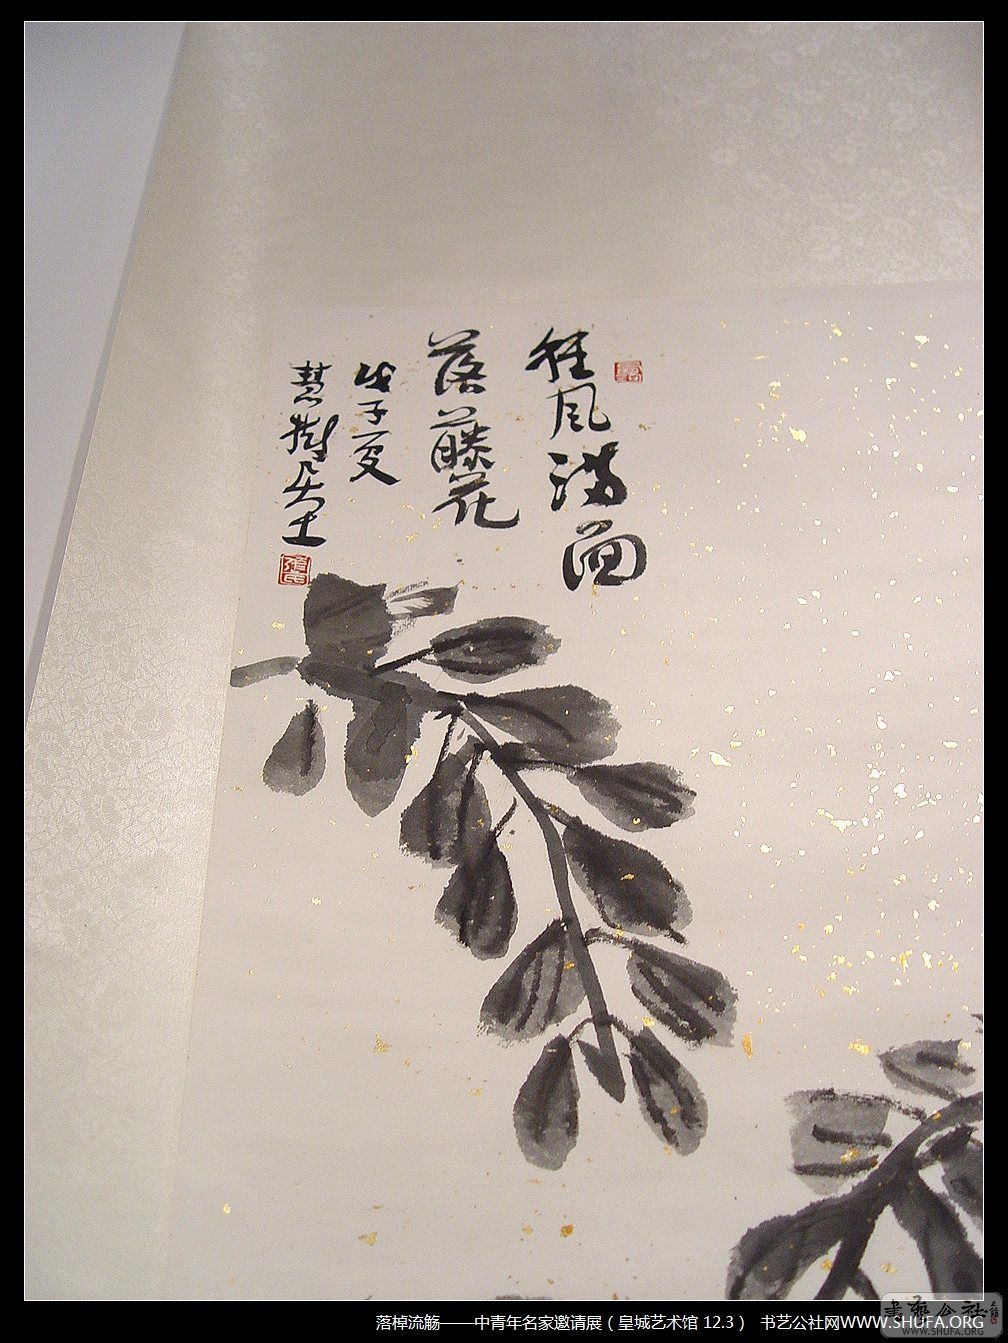 狂风满面
落藤花
戊子夏
慧树居士
落棹流觞——中青年名家邀请展（皇城艺术馆 12.3） 书艺公社网WWW.SHUFA.ORG
書艺公社
WWW.SHUFA.ORG